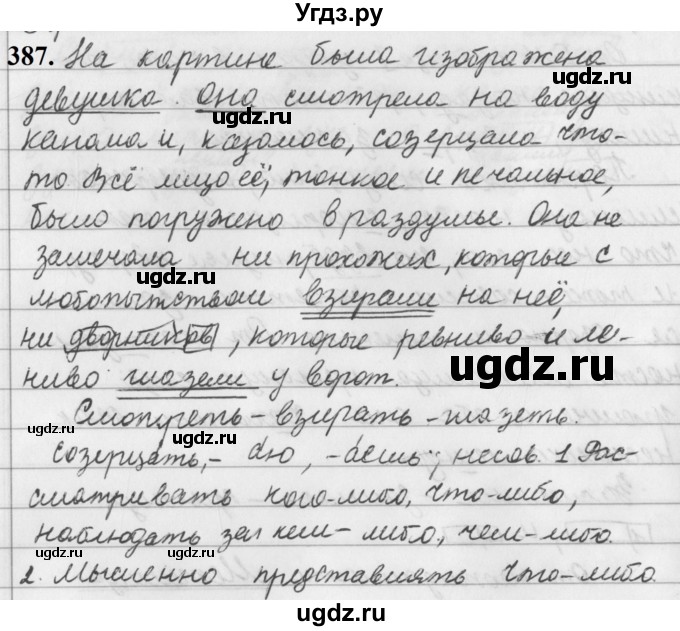 Угдз.ру
387. На картине была изображена
девушка. Она смотрела на воду
канала и, казалось, созерцала что-
то Всё лицо её, тонкое и печальное,
было погружено в раздумье. Она не
замечала ни прохожих, которые с
любопытством взирали на неё,
ни дворников, которые ревниво и ле-
ниво глазели у ворот.
Смотреть – взирать – глазеть.
Созерцать, – аю, – аешь; несов. 1 Рас-
сматривать кого-либо, что-либо,
наблюдать за кем-либо, чем-либо.
2. Мысленно представлять что-либо.
ugdz.ru
ugdz.ru
ugdz.ru
ugdz.ru
ugdz.ru
ugdz.ru
ugdz.ru
ugdz.ru
ugdz.ru
ugdz.ru
ugdz.ru